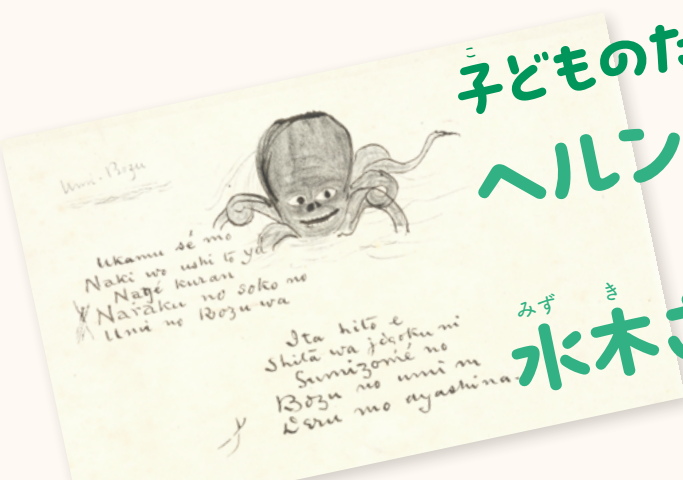 子どものた
こ
ヘルン
みず き
水木さ
Umi-Bozu
Ukamu sé mo
Naki wo ushi to ya
Nagé kuran
Naraku no soko no
Umi no Bozu wa
Ita hito é
Shita wa jigoku ni
Sumizomé no
Bozu no umi ni
Deru mo ayashina.